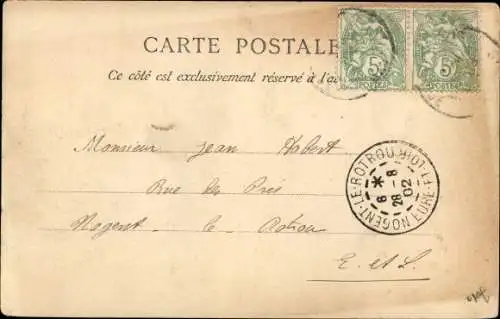 CARTE POSTALE
Ce côté est exclusivement réservé à l'a
5c
POSTES
5c
POSTES
Monsieur Jean Habert
Rue des Prés
Nogent le Rotrou
E. et L.
NOGENT-LE-ROTROU
EURE-ET-LOIR
6 *
28 - 8
02